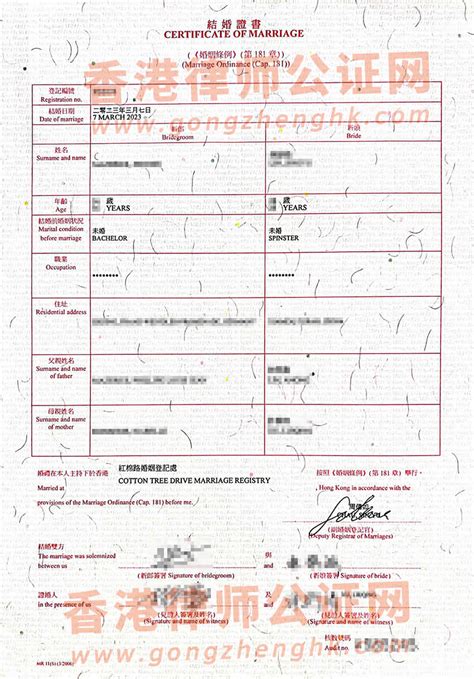 結婚證書
CERTIFICATE OF MARRIAGE
(《婚姻條例》(第 181 章))
(Marriage Ordinance (Cap. 181))
香港律师公证网
www.gongzhenghk.com
登記編號
Registration no.
結婚日期
Date of marriage
二零二三年三月七日
7 MARCH 2023
新郎
Bridegroom
新娘
Bride
姓名
Surname and name
年齡
Age
歲
YEARS
歲
YEARS
結婚前婚姻狀況
Marital condition
before marriage
未婚
BACHELOR
未婚
SPINSTER
職業
Occupation
********
********
住址
Residential address
父親姓名
Surname and name
of father
母親姓名
Surname and name
of mother
婚禮在本人主持下於香港
紅棉路婚姻登記處
按照《婚姻條例》(第 181 章) 舉行。
Married at
COTTON TREE DRIVE MARRIAGE REGISTRY
, Hong Kong in accordance with the
provisions of the Marriage Ordinance (Cap. 181) before me.
(副婚姻登記官)
(Deputy Registrar of Marriages)
結婚雙方
The marriage was solemnized
between us
與
and
(新郎簽署) Signature of bridegroom)
(新娘簽署) Signature of bride)
香港律师公证网
證婚人
in the presence of us
和
and
(見證人簽署及姓名)
(Signature and name of witness)
(見證人簽署及姓名)
(Signature and name of witness)
www.gongzhenghk.com
核數號碼
Audit no.